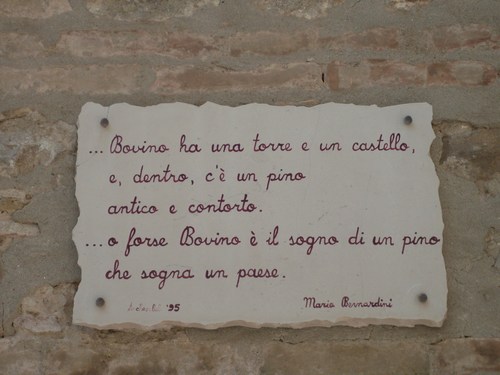 ... Bovino ha una torre e un castello,
e, dentro, c'è un pino
antico e contorto.
... o forse Bovino è il sogno di un pino
che sogna un paese.
'95
Maria Bernardini